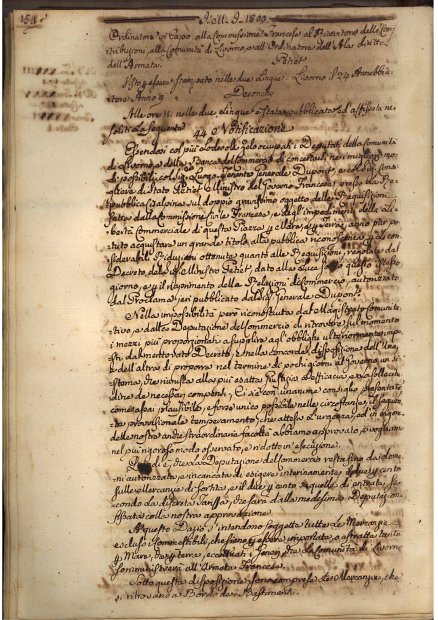 158
Nell' 9. 1800.
Ordinatore in Capo alla Commissione Francese al Ricevitore delle Con
tribuzioni, alla Comunità di Livorno, e all'Ordinatore dell'Ala diritta
dell'Armata.
Petiet
Visto e fatto stampato nelle due Lingue Livorno li 24 Annebbia
tore Anno 9
Alle ore nelle due Lingue è stata pubblicata ed affissa nei
soliti la seguente
44 Notificazione
Essendosi col più lodevole zelo occupati i Deputati della Comunità
di Livorno, e della Banca del Commercio di concertare nei migliori modi
possibili col Luogo-Tenente Generale Dupont, e col Consi
gliere di Stato Petiet Ministro del Governo Francese presso la Re
pubblica Cisalpina sul doppio gravissimo oggetto delle Requisizioni
fatte dalla Commissione Civile Francese, e degli impedimenti della li
bertà Commerciale di questa Piazza
acquistare un grande titolo alla pubblica riconoscenza
siderabili Riduzioni ottenute quanto alle Requisizioni
Decreto del Ministro Petiet dato alla Luce questo stesso
giorno, e il riaprimento delle Relazioni di Commercio, autorizzato
dal Proclama jeri pubblicato dal Generale Dupont.
Nella impossibilità però riconosciuta dal Magistrato Comunita
tivo, e dalla Deputazione del Commercio di ritrovare sul momento
i mezzi più proporzionati a supplire agli obblighi ulteriormente impo
sti dal mentovato Decreto, e nella concorde disposizione dell'una,
e dell'altra di proporre nel termine di pochi giorni al Governo un si
stema, che riunisca alla più esatta Giustizia l'efficacia, e la solleci
dine dei necessari compensi, Ci è con unanime consiglio presentato
come assai plausibile, e forse unico possibile nelle circostanze il seguen
te provvisionale temperamento, che attesa l'urgenza, ed in vigore
delle nostre anche straordinarie facoltà abbiamo approvato, e vogliamo
nel più rigoroso modo osservato, e ridotto in esecuzione.
che la Deputazione del Commercio resta fino da doma
ni autorizzata, e incaricata di esigere interinamente il due per cento
sulle Mercanzie di sortita, e il due per cento su quelle di entrata, se
condo la discreta Tariffa, che sarà dalla medesima Deputazione
fissata colla nostra approvazione.
A questo Dazio s'intendono soggette tutte le Mercanzie
esclusi i Commestibili, che sieno o importate, o estratte tanto
per Mare, che per terra, eccettuati i Generi, che la Comunità di Livorno
somministrerà all'Armata Francese.
Sotto questa disposizione sono comprese le Mercanzie, che
si ritrovano a Bordo dei Bastimenti.